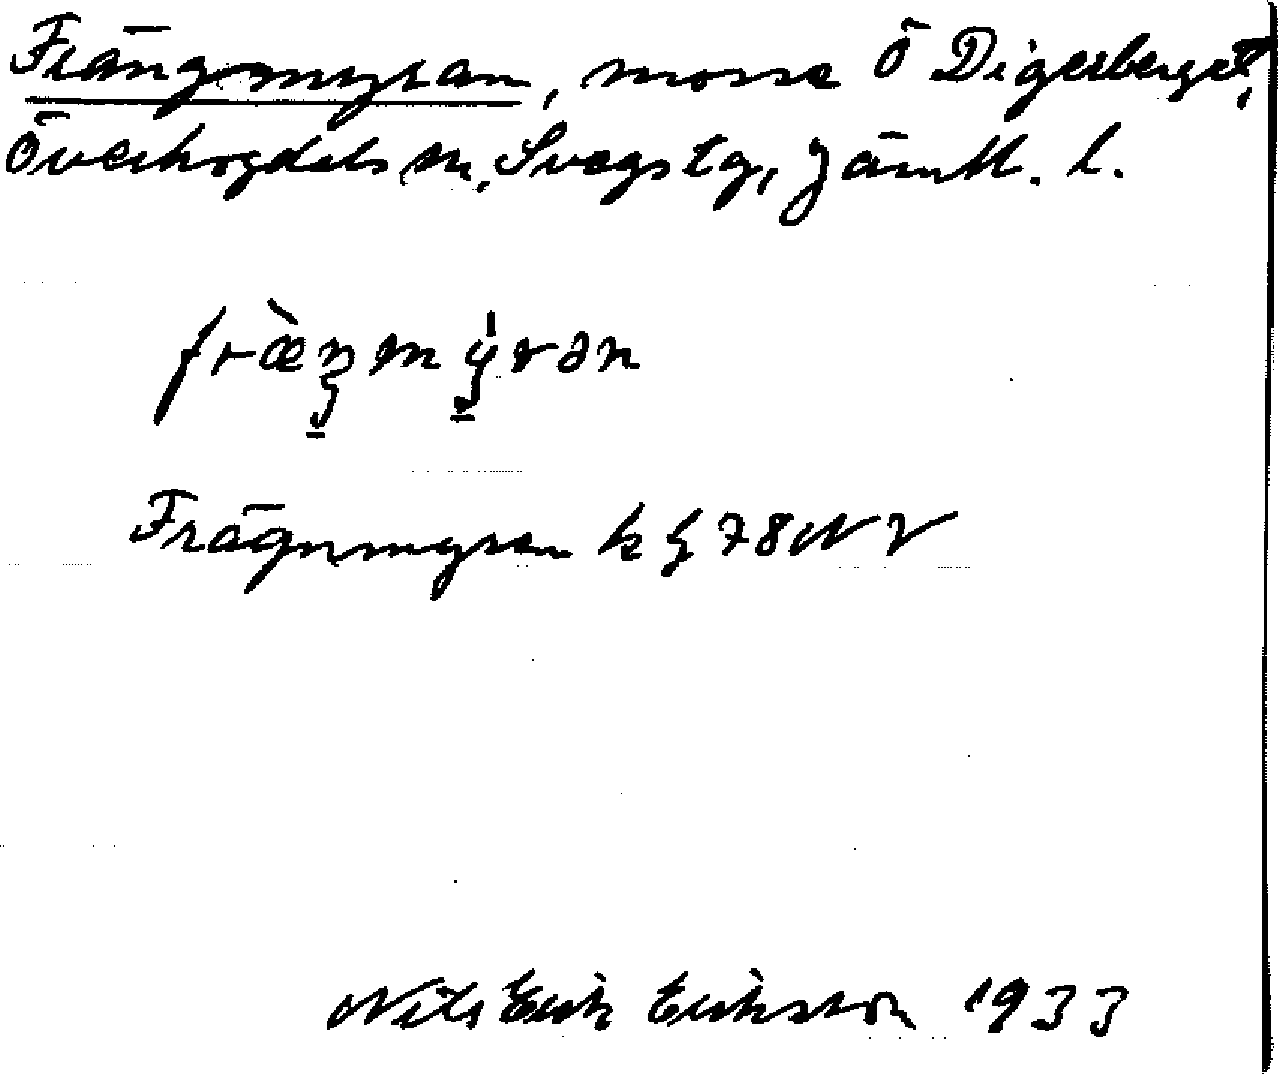 Frängmyran, mosse Ö Digerberget,
Överhogdals sn, Svegs tg, Jämtl. l.
fræ̀ŋmy̍rən
Frägnmyran k ξ 78 NV
Nils Erik Erikson 1933